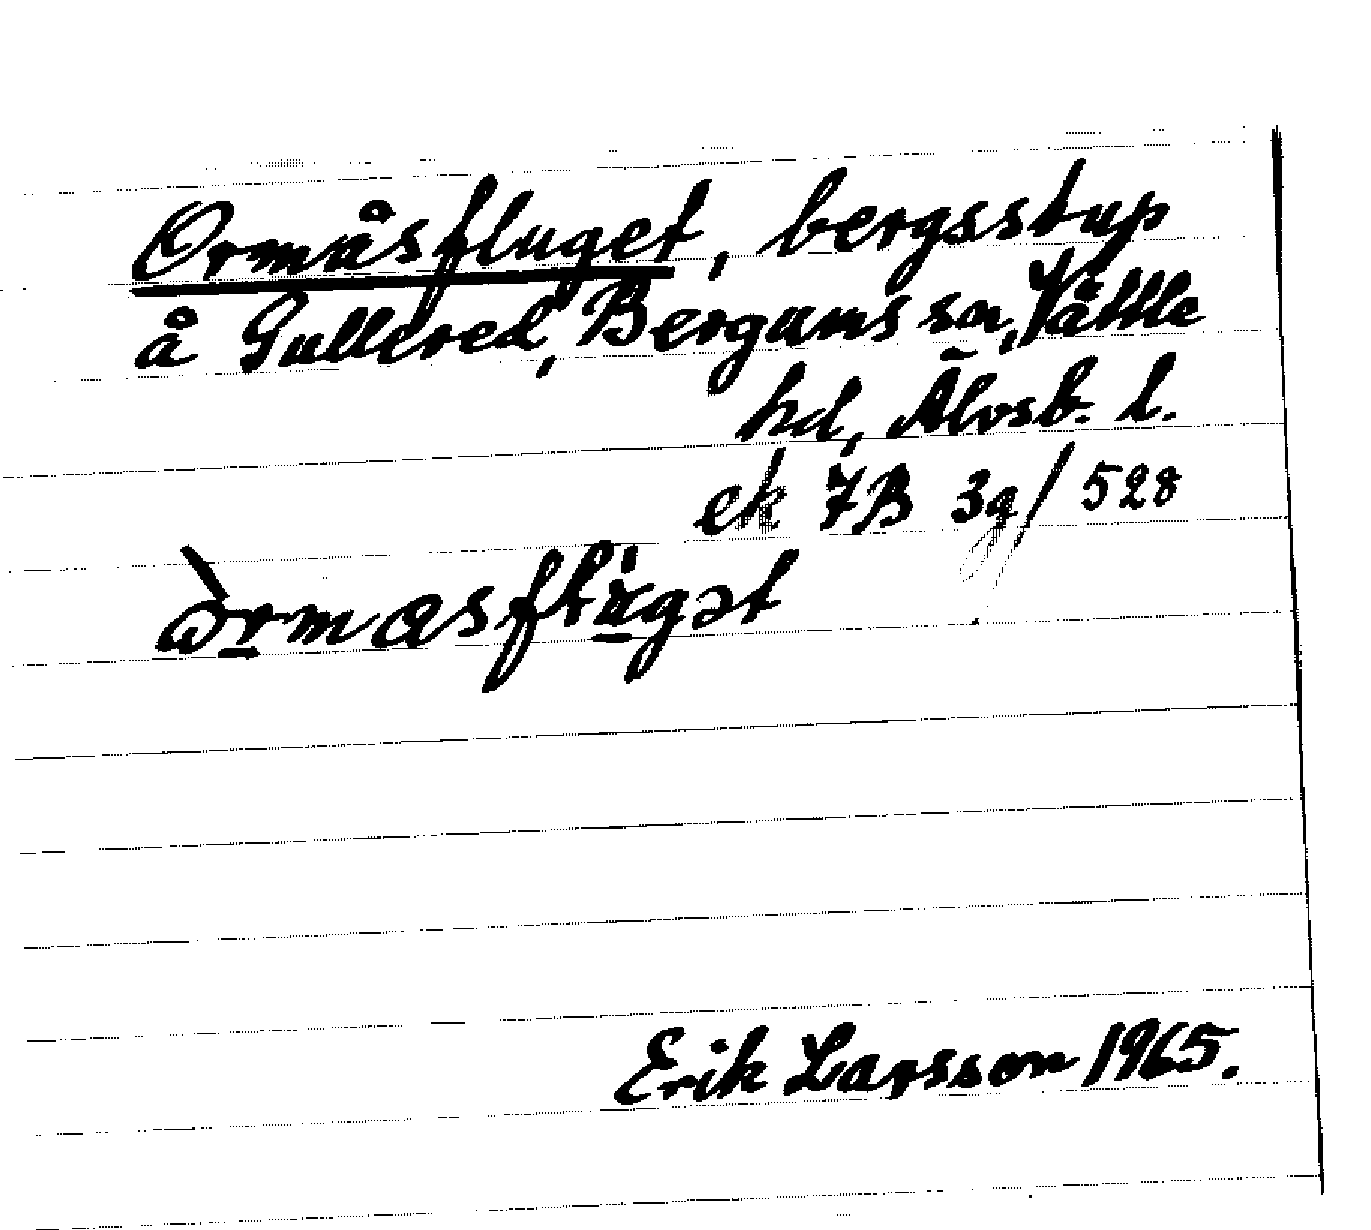 Ormåsfluget, bergsstup
å Gullered, Bergums sn, Vättle
hd, Älvsb. l.
ek 7B 3g/528
Erik Larsson 1965.